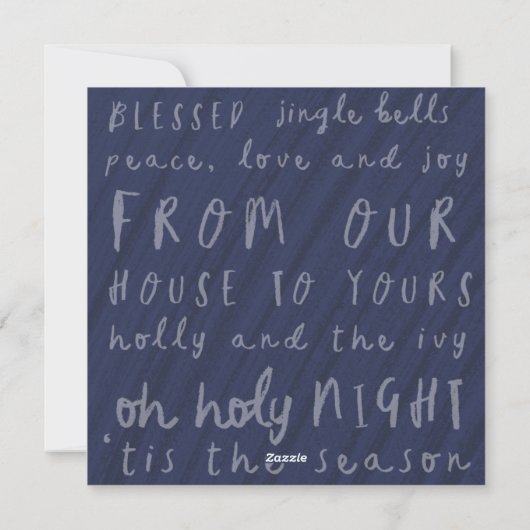 BLESSED jingle bells
peace, love and joy
FROM OUR
HOUSE TO YOURS
holly and the ivy
oh holy NIGHT
'tis the season
Zazzle